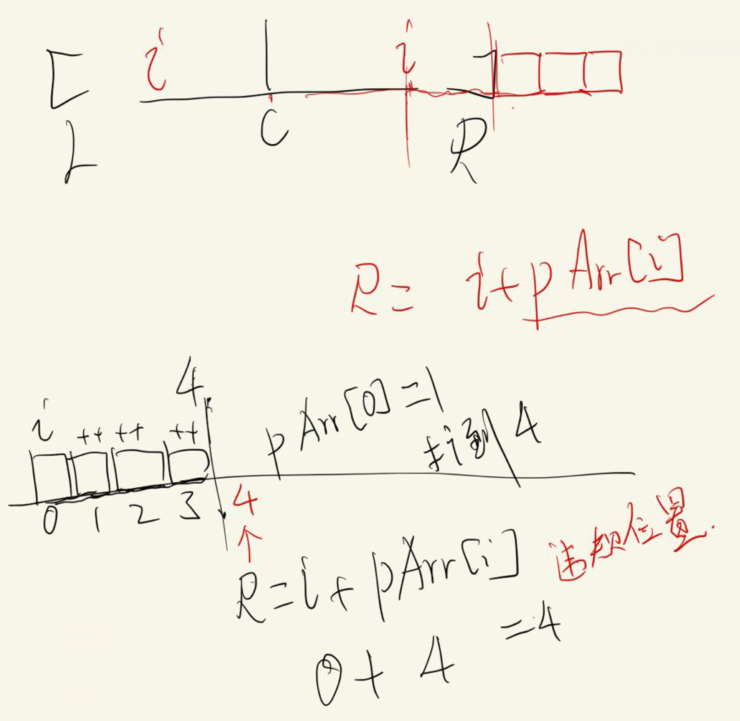 i i
L C R
R = i + pArr[i]
4
i ++ ++ ++
pArr[0] = 1
扩到 4
0 1 2 3 4
违规位置.
R = i + pArr[i]
0 + 4 = 4